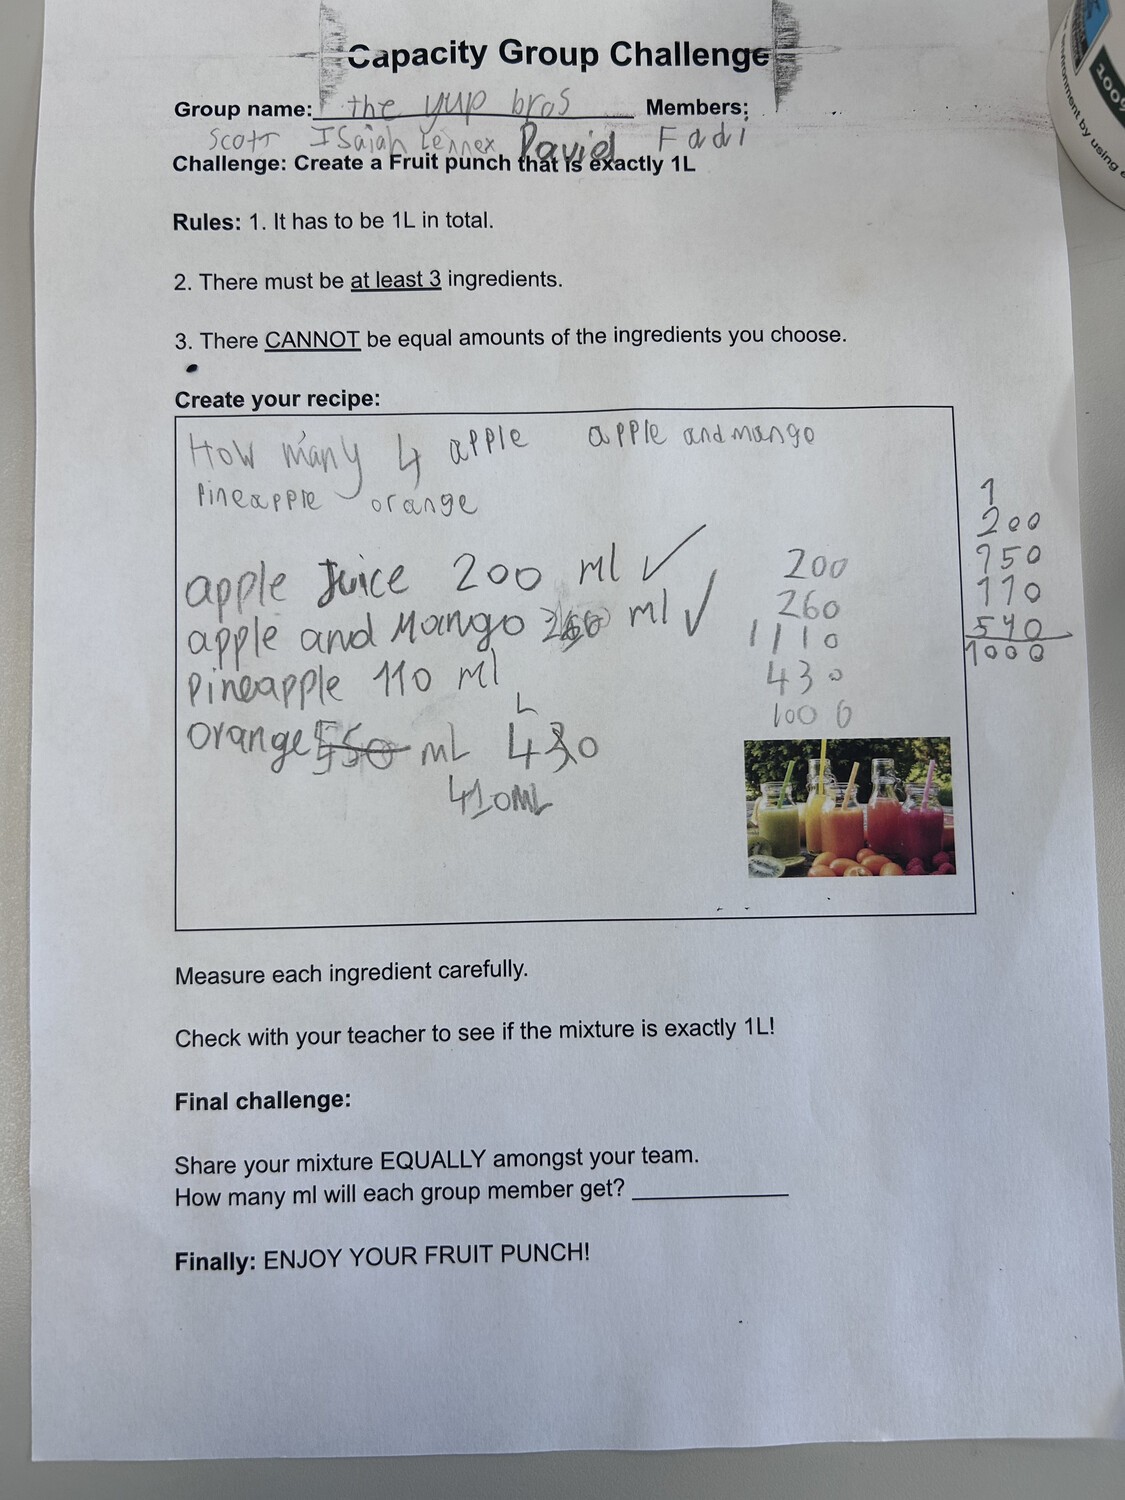 Capacity Group Challenge
Group name: the yup bros Members:
Scott Isaiah Lennex David Fadi
Challenge: Create a Fruit punch that is exactly 1L
Rules: 1. It has to be 1L in total.
2. There must be at least 3 ingredients.
3. There CANNOT be equal amounts of the ingredients you choose.
Create your recipe:
How many 4 apple apple and mango
Pineapple orange
apple Juice 200 ml ✓
apple and Mango ml ✓
Pineapple 110 ml
L
orange 550 mL 430
410ML
200
260
1110
430
1000
1
200
150
110
540
1000
Measure each ingredient carefully.
Check with your teacher to see if the mixture is exactly 1L!
Final challenge:
Share your mixture EQUALLY amongst your team.
How many ml will each group member get?
Finally: ENJOY YOUR FRUIT PUNCH!
100%
environment by using